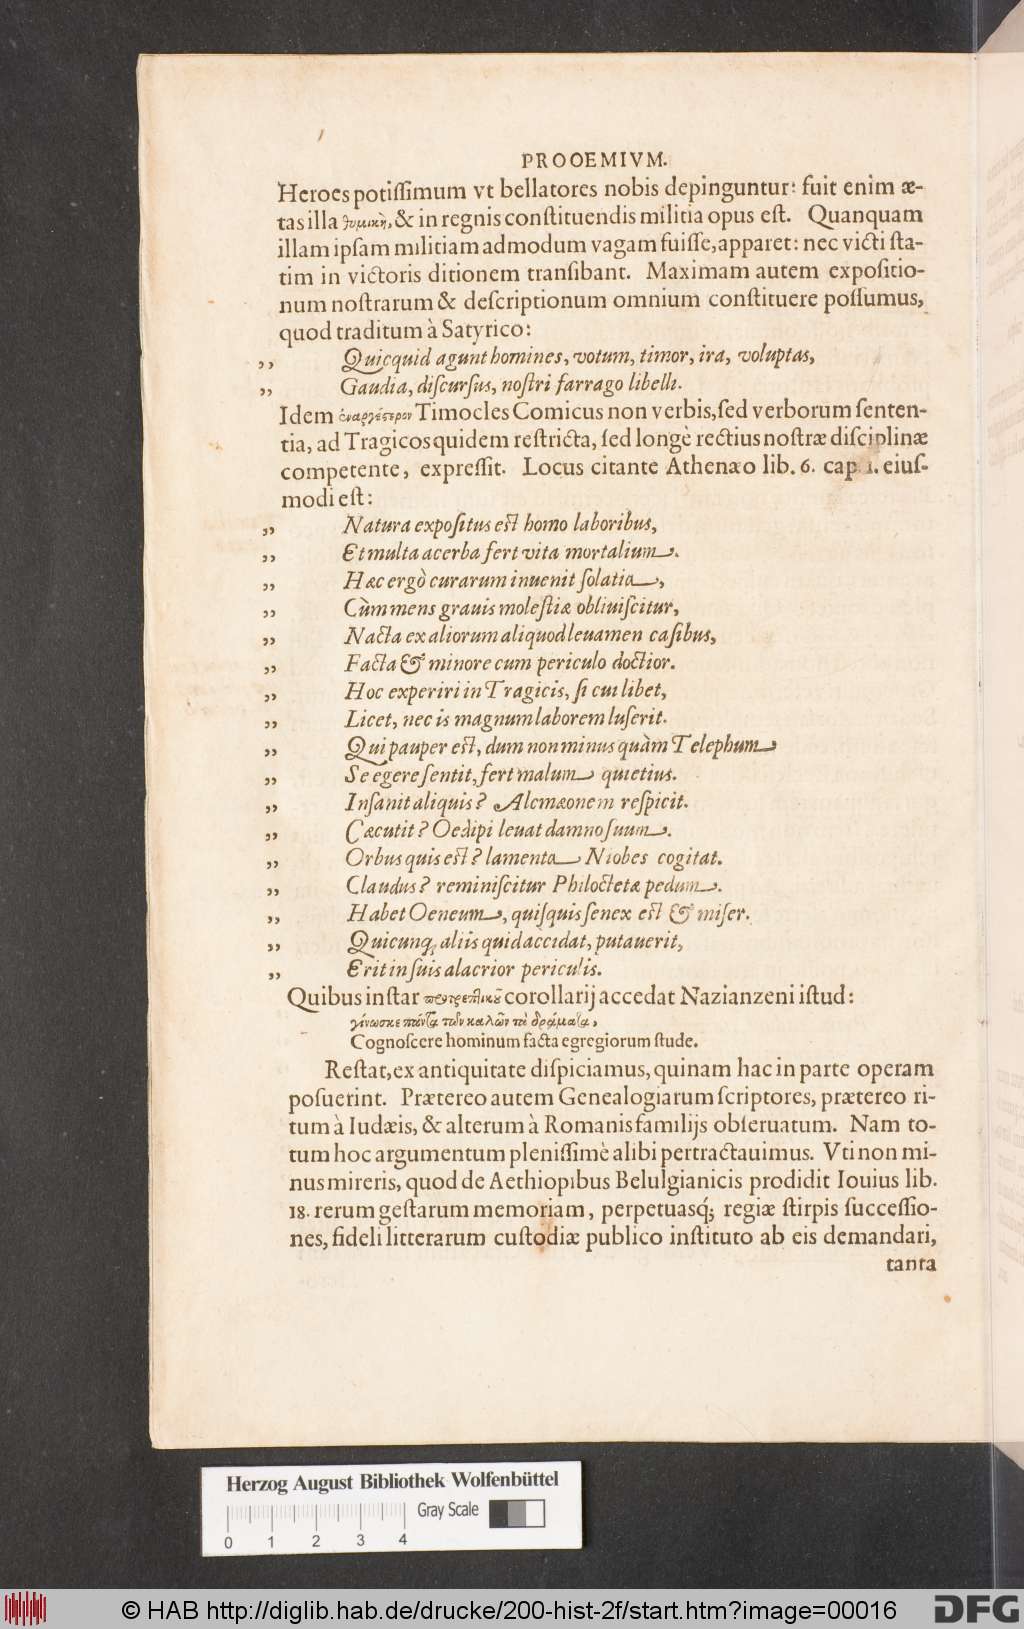 PROOEMIVM.
Heroes potiſſimum vt bellatores nobis depinguntur: fuit enim æ-
tas illa θυμικὴ, & in regnis conſtituendis militia opus eſt. Quanquam
illam ipſam militiam admodum vagam fuiſſe, apparet: nec victi ſta-
tim in victoris ditionem tranſibant. Maximam autem expoſitio-
num noſtrarum & deſcriptionum omnium conſtituere poſſumus,
quod traditum à Satyrico:
„ Quicquid agunt homines, votum, timor, ira, voluptas,
„ Gaudia, diſcurſus, noſtri farrago libelli.
Idem ἐναργέστερον Timocles Comicus non verbis, ſed verborum ſenten-
tia, ad Tragicos quidem reſtricta, ſed longè rectius noſtræ diſciplinæ
competente, expreſſit. Locus citante Athenæo lib. 6. cap. 1. eiuſ-
modi eſt:
„ Natura expoſitus eſt homo laboribus,
„ Et multa acerba fert vita mortalium.
„ Hæc ergò curarum inuenit ſolatia,
„ Cùm mens grauis moleſtiæ obliuiſcitur,
„ Nacta ex aliorum aliquod leuamen caſibus,
„ Facta & minore cum periculo doctior.
„ Hoc experiri in Tragicis, ſi cui libet,
„ Licet, nec is magnum laborem luſerit.
„ Qui pauper eſt, dum non minus quàm Telephum
„ Se egere ſentit, fert malum quietius.
„ Inſanit aliquis? Alcmæonem reſpicit.
„ Cæcutit? Oedipi leuat damno ſuum.
„ Orbus quis eſt? lamenta Niobes cogitat.
„ Claudus? reminiſcitur Philoctetæ pedum.
„ Habet Oeneum, quiſquis ſenex eſt & miſer.
„ Quicunq; aliis quid accidat, putauerit,
„ Erit in ſuis alacrior periculis.
Quibus inſtar προτρεπτικοῦ corollarij accedat Nazianzeni iſtud:
γίνωσκε πάντα τῶν καλῶν τὰ δράματα,
Cognoſcere hominum facta egregiorum ſtude.
Reſtat, ex antiquitate diſpiciamus, quinam hac in parte operam
poſuerint. Prætereo autem Genealogiarum ſcriptores, prætereo ri-
tum à Iudæis, & alterum à Romanis familijs obſeruatum. Nam to-
tum hoc argumentum pleniſſimè alibi pertractauimus. Vti non mi-
nus mireris, quod de Aethiopibus Belulgianicis prodidit Iouius lib.
18. rerum geſtarum memoriam, perpetuasq́; regiæ ſtirpis ſucceſſio-
nes, fideli litterarum cuſtodiæ publico inſtituto ab eis demandari,
tanta
Herzog August Bibliothek Wolfenbüttel
Gray Scale
0 1 2 3 4
© HAB http://diglib.hab.de/drucke/200-hist-2f/start.htm?image=00016
DFG